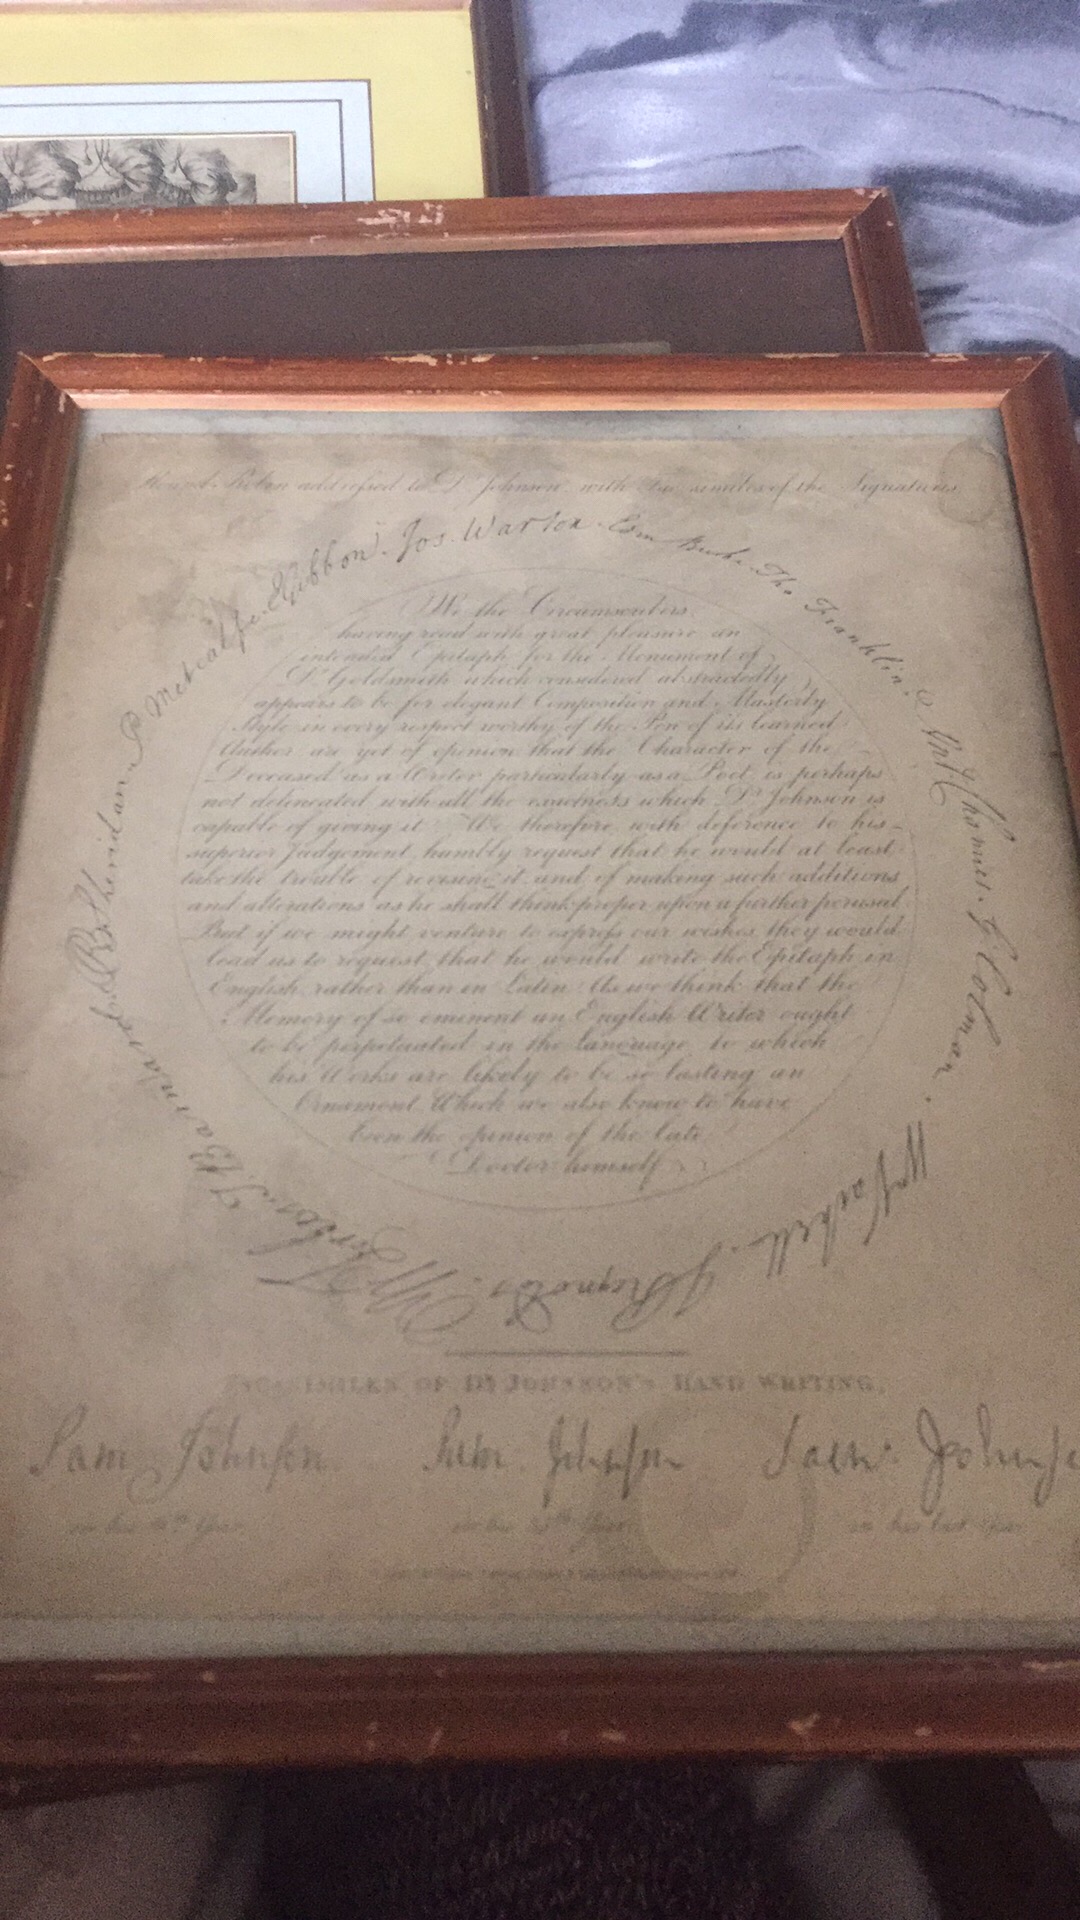 Round Robin addressed to Dr Johnson, with Fac similes of the Signatures
Edw Gibbon. Jos. Warton. Edm Burke. Tho Franklin. Ant Chamier. G Colman. Wm Vachell. J Reynolds. W Forbes. T. Barnard. R B Sheridan. P Metcalfe.
We the Circumscribers,
having read with great pleasure an
intended Epitaph for the Monument of
Dr Goldsmith which considered abstractedly
appears to be for elegant Composition and Masterly
Style in every respect worthy of the Pen of its learned
Author are yet of opinion that the Character of the
Deceased as a Writer particularly as a Poet is perhaps
not delineated with all the exactness which Dr Johnson is
capable of giving it We therefore with deference to his
superior Judgement humbly request that he would at least
take the trouble of revising it and of making such additions
and alterations as he shall think proper upon a further perusal
But if we might venture to express our wishes they would
lead us to request, that he would write the Epitaph in
English rather than in Latin As we think that the
Memory of so eminent an English Writer ought
to be perpetuated in the language, to which
his Works are likely to be so lasting an
Ornament Which we also know to have
been the opinion of the late
Doctor himself
FAC SIMILES OF Dr JOHNSON'S HAND WRITING,
Sam Johnson Sam Johnson Sam: Johnso
in his Year in his Year in his last Year